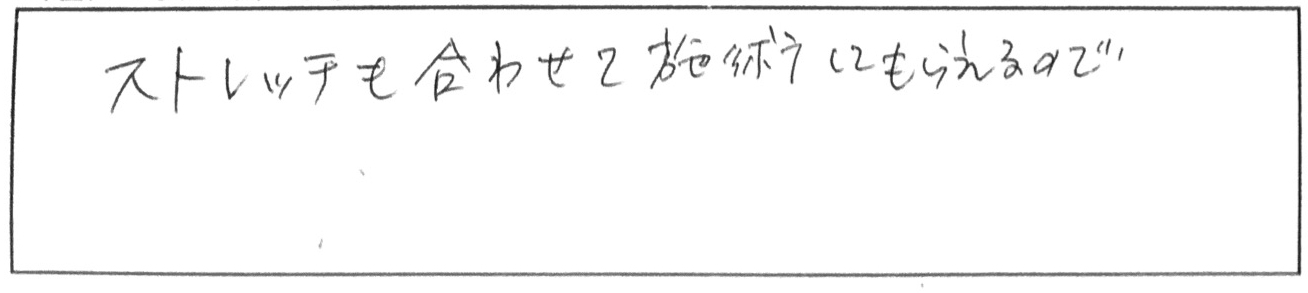 ストレッチも合わせて施術してもらえるので